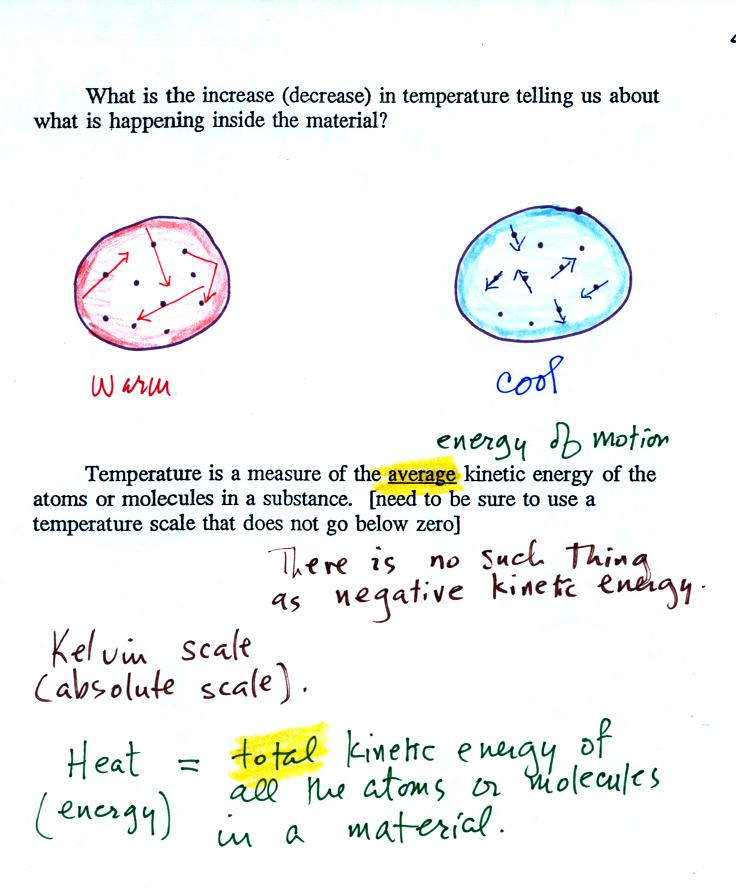 What is the increase (decrease) in temperature telling us about
what is happening inside the material?
warm
cool
energy of motion
Temperature is a measure of the average kinetic energy of the
atoms or molecules in a substance. [need to be sure to use a
temperature scale that does not go below zero]
There is no such thing
as negative kinetic energy.
Kelvin scale
(absolute scale).
Heat = total kinetic energy of
(energy) all the atoms or molecules
in a material.